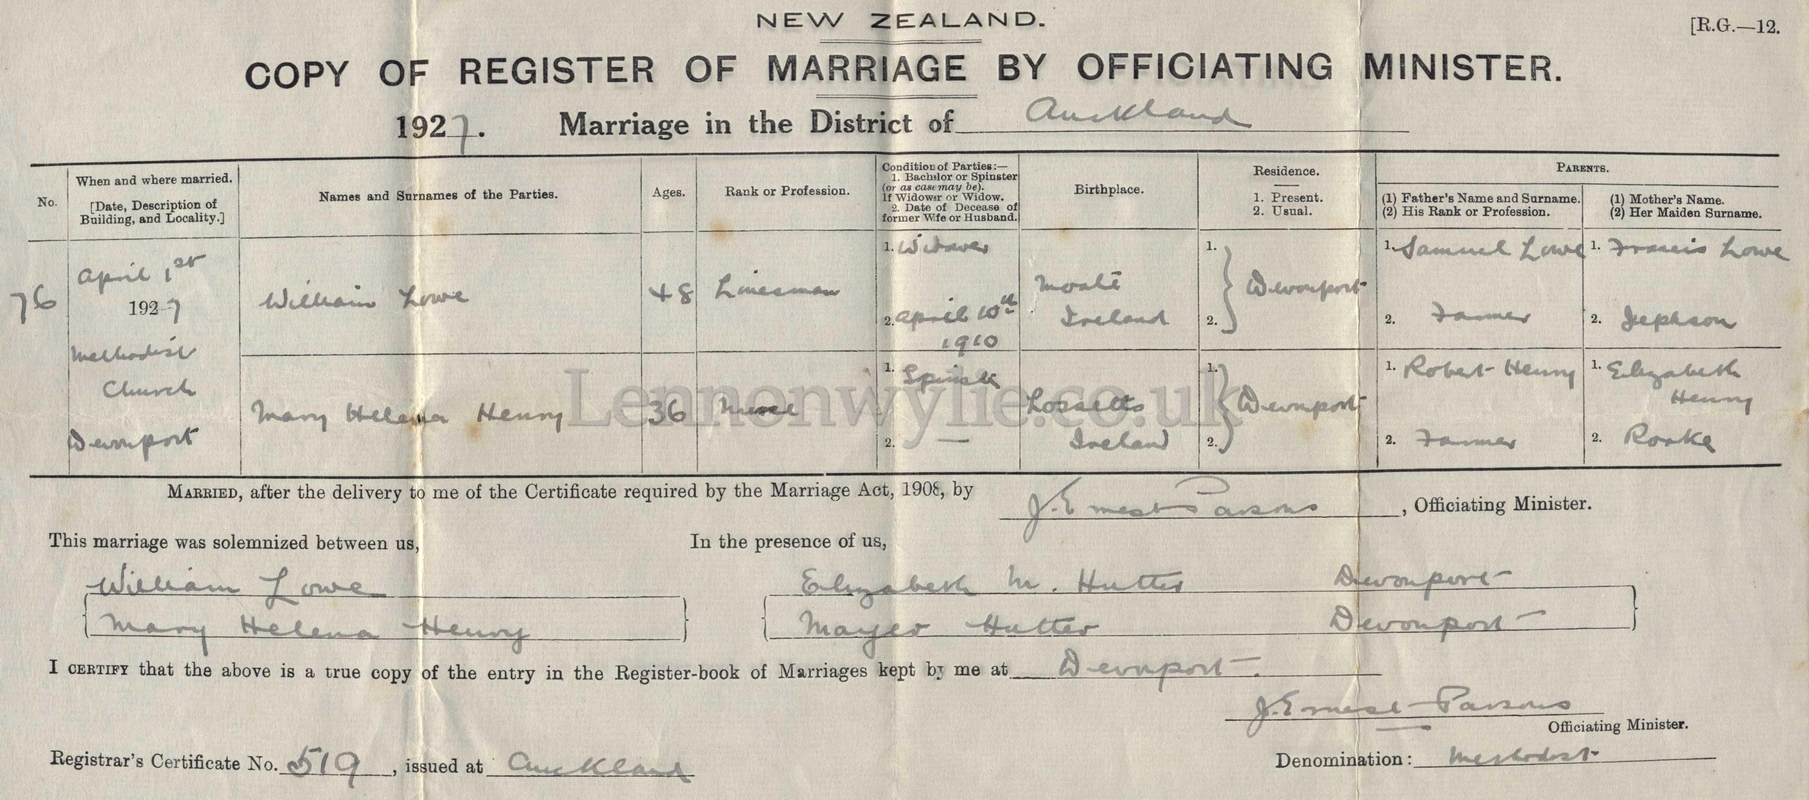 NEW ZEALAND.
[R.G.—12.
COPY OF REGISTER OF MARRIAGE BY OFFICIATING MINISTER.
1927. Marriage in the District of Auckland
No.
When and where married.
[Date, Description of
Building, and Locality.]
Names and Surnames of the Parties.
Ages.
Rank or Profession.
Condition of Parties:—
1. Bachelor or Spinster
(or as case may be).
If Widower or Widow.
2. Date of Decease of
former Wife or Husband.
Birthplace.
Residence.
1. Present.
2. Usual.
PARENTS.
(1) Father's Name and Surname.
(2) His Rank or Profession.
(1) Mother's Name.
(2) Her Maiden Surname.
76
April 1st
1927
Methodist
Church
Devonport
William Lowe
48
Linesman
1. Widower
2. April 10th
1910
Moate
Ireland
1.
2.
Devonport
1. Samuel Lowe
2. Farmer
1. Francis Lowe
2. Jephson
Mary Helena Henry
36
Nurse
1. Spinster
2. —
Lossetts
Ireland
1.
2.
Devonport
1. Robert Henry
2. Farmer
1. Elizabeth
Henry
2. Rorke
Lennonwylie.co.uk
MARRIED, after the delivery to me of the Certificate required by the Marriage Act, 1908, by J. Ernest Parsons, Officiating Minister.
This marriage was solemnized between us,
In the presence of us,
William Lowe
Elizabeth M. Hutter Devonport
Mary Helena Henry
Mayer Hutter Devonport
I CERTIFY that the above is a true copy of the entry in the Register-book of Marriages kept by me at Devonport.
J. Ernest Parsons
Officiating Minister.
Registrar's Certificate No. 519, issued at Auckland
Denomination: Methodist